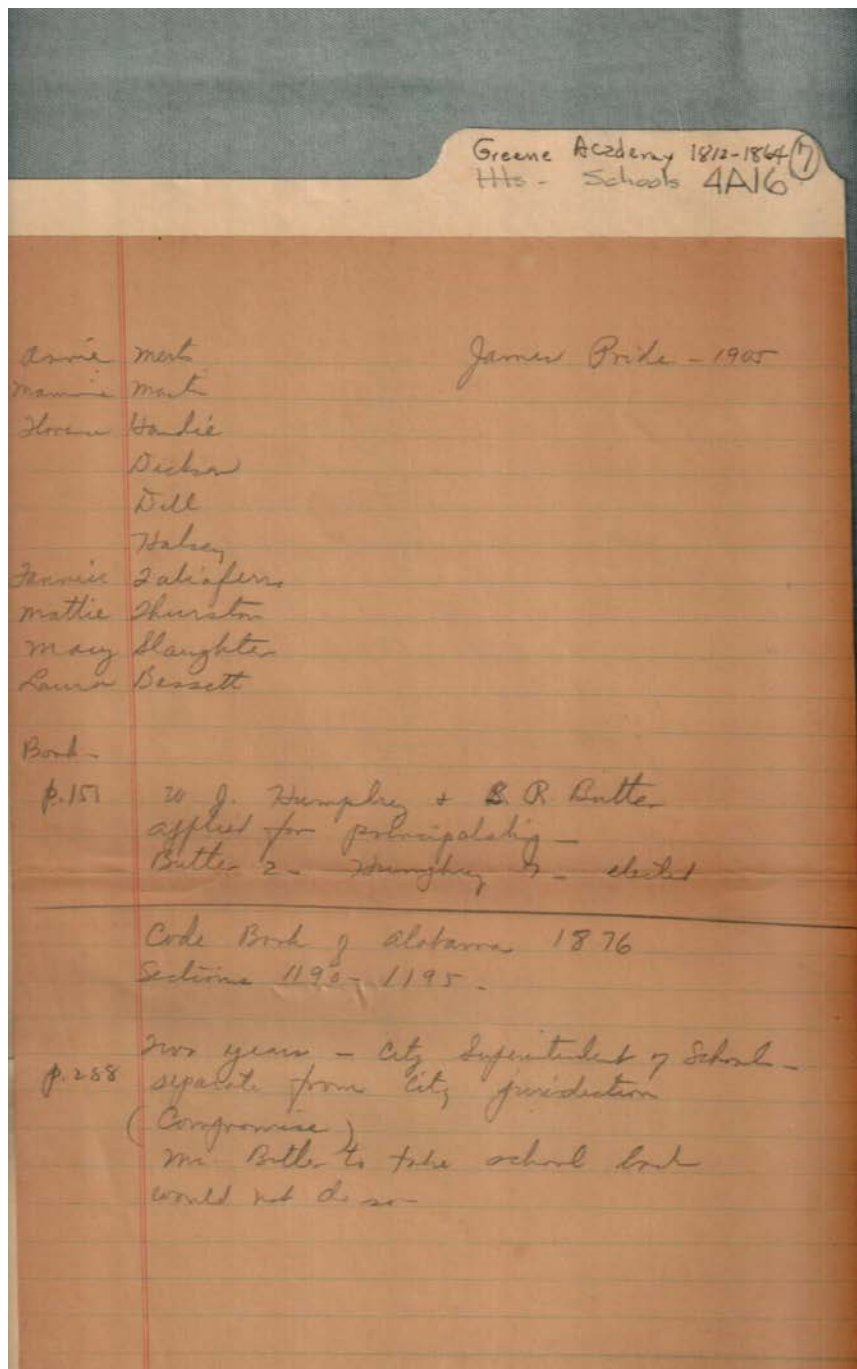 Greene Academy 1812-1864 (7)
Hts - Schools 4A16
James Pride - 1905
Annie Merts
Mamie
Florence Handie
Dickson
Dill
Halsey
Fannie Taliaferro
Mattie Thurston
Mary Slaughter
Laura Bassett
Book
p.151 W J. Humphrey & S. R. Butler
applied for principalship -
Butler 2 - Humphrey - elected
Code Book of Alabama 1876
Sections 1190 - 1195 -
Two years - City Superintendent of Schools -
p.288 separate from City jurisdiction
(Compromise)
Mr Butler to take school back
would not do so